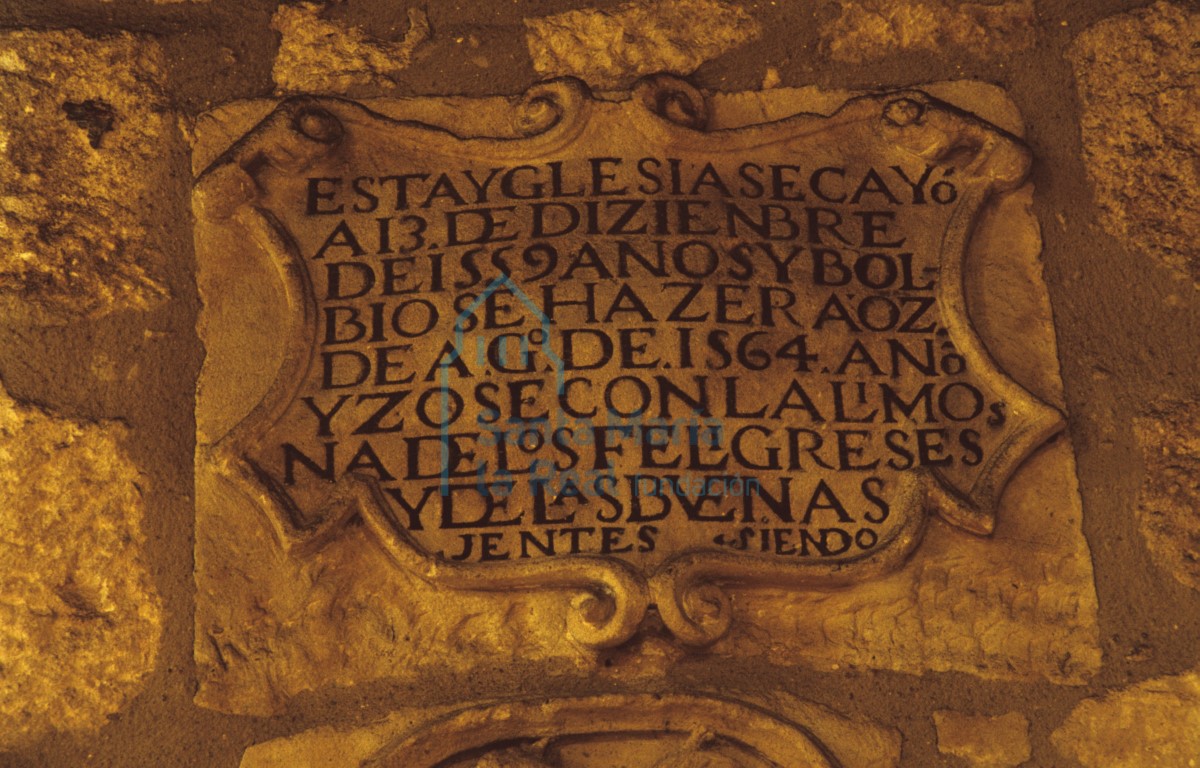 ESTA YGLESIA SE CAYÓ
A 13. DE DIZIENBRE
DE 1559 ANOS Y BOL-
BIOSE HAZER A OZ.
DE A.Gº. DE. 1564. ANº
YZOSE CON LA LIMOS
NA DE LOS FELIGRESES
Y DE LAS BVENAS
JENTES SIENDO
Santa María
la Real fundación